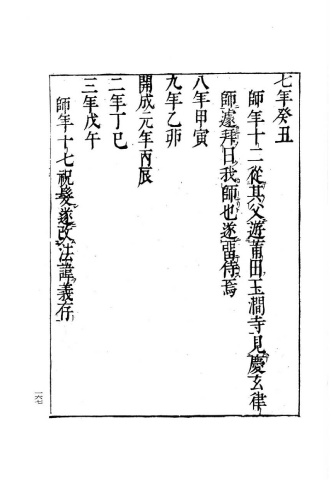 七年癸丑
師年十二從其父遊莆田玉澗寺見慶玄律
師遽拜曰我師也遂留侍焉
八年甲寅
九年乙卯
開成元年丙辰
二年丁巳
三年戊午
師年十七祝髮遂改法諱義存
一六七